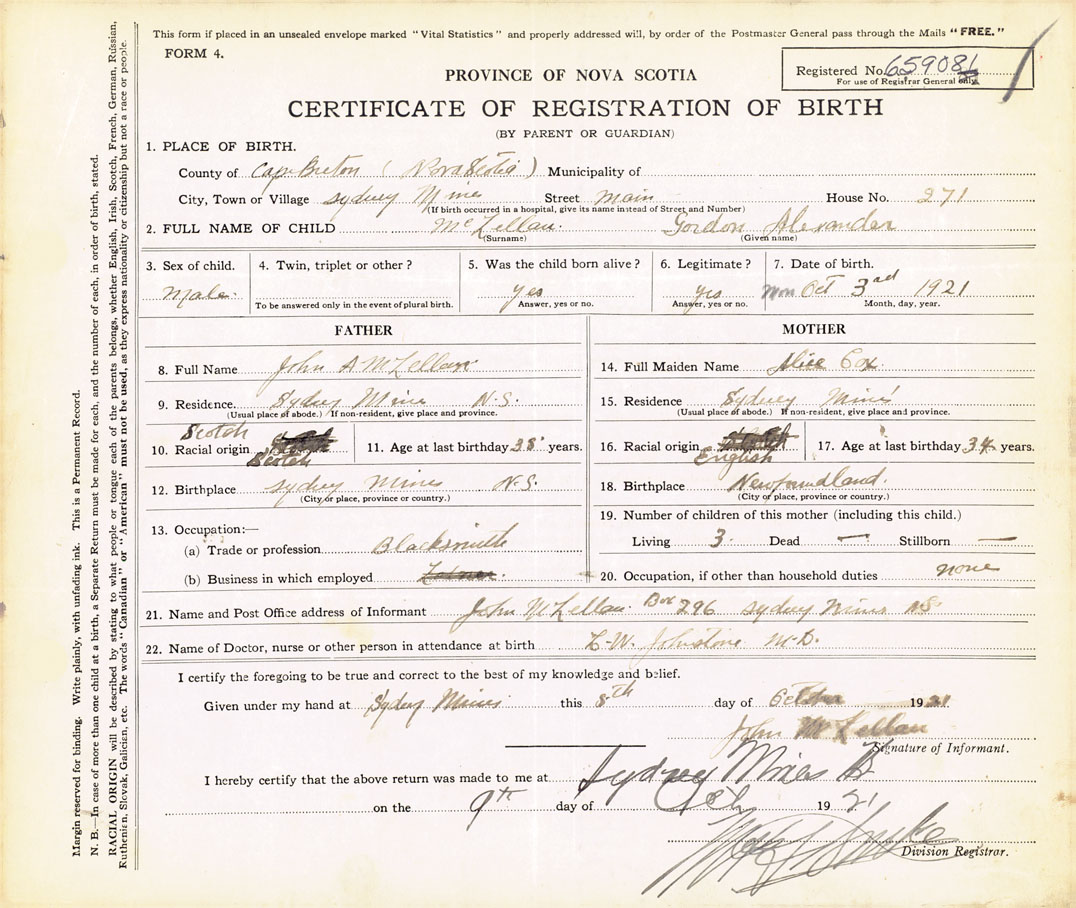 This form if placed in an unsealed envelope marked "Vital Statistics" and properly addressed will, by order of the Postmaster General pass through the Mails "FREE."
FORM 4.
Registered No. 659081
For use of Registrar General only.
PROVINCE OF NOVA SCOTIA
CERTIFICATE OF REGISTRATION OF BIRTH
(BY PARENT OR GUARDIAN)
1. PLACE OF BIRTH.
County of Cape Breton (Nova Scotia) Municipality of
City, Town or Village Sydney Mines Street Main House No. 271
(If birth occurred in a hospital, give its name instead of Street and Number)
2. FULL NAME OF CHILD McLellan. Gordon Alexander
(Surname) (Given name)
3. Sex of child. 4. Twin, triplet or other? 5. Was the child born alive? 6. Legitimate? 7. Date of birth.
Male. yes yes Mon Oct 3rd 1921
To be answered only in the event of plural birth. Answer, yes or no. Answer, yes or no. Month, day, year.
FATHER
8. Full Name John A McLellan
9. Residence. Sydney Mines N.S.
(Usual place of abode.) If non-resident, give place and province.
Scotch
10. Racial origin Scotch 11. Age at last birthday 38 years.
12. Birthplace Sydney Mines N.S.
(City or place, province or country.)
13. Occupation:—
(a) Trade or profession Blacksmith
(b) Business in which employed
MOTHER
14. Full Maiden Name Alice Cox.
15. Residence Sydney Mines
(Usual place of abode.) If non-resident, give place and province.
16. Racial origin English 17. Age at last birthday 34 years.
18. Birthplace Newfoundland.
(City or place, province or country.)
19. Number of children of this mother (including this child.)
Living 3. Dead — Stillborn —
20. Occupation, if other than household duties none
21. Name and Post Office address of Informant John McLellan. Box 296 Sydney Mines N.S.
22. Name of Doctor, nurse or other person in attendance at birth L.W. Johnstone M.D.
I certify the foregoing to be true and correct to the best of my knowledge and belief.
Given under my hand at Sydney Mines this 8th day of October 1921
John McLellan
Signature of Informant.
I hereby certify that the above return was made to me at Sydney Mines
on the 9th day of Oct 1921
Division Registrar.
Margin reserved for binding. Write plainly, with unfading ink. This is a Permanent Record.
N. B.—In case of more than one child at a birth, a Separate Return must be made for each, and the number of each, in order of birth, stated.
RACIAL ORIGIN will be described by stating to what people or tongue each of the parents belongs, whether English, Irish, Scotch, French, German, Russian,
Ruthenian, Slovak, Galician, etc. The words "Canadian" or "American" must not be used, as they express nationality or citizenship but not a race or people.